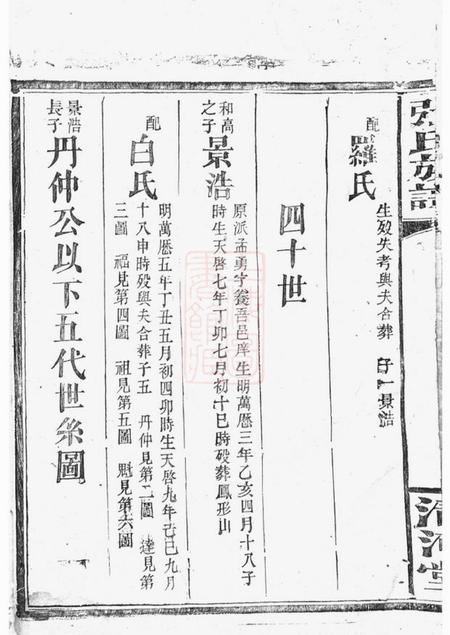 張氏族譜
清河堂
配羅氏
生歿失考與夫合葬 子一景浩
四十世
和高之子景浩
原派孟勇字養吾邑庠生明萬曆三年乙亥四月十八子
時生天啓七年丁卯七月初十巳時歿葬鳳形山
配白氏
明萬曆五年丁丑五月初四卯時生天啓九年己巳九月
十八申時歿與夫合葬子五 丹仲見第二圖 達見第
三圖 福見第四圖 祖見第五圖 魁見第六圖
景浩長子丹仲公以下五代世系圖